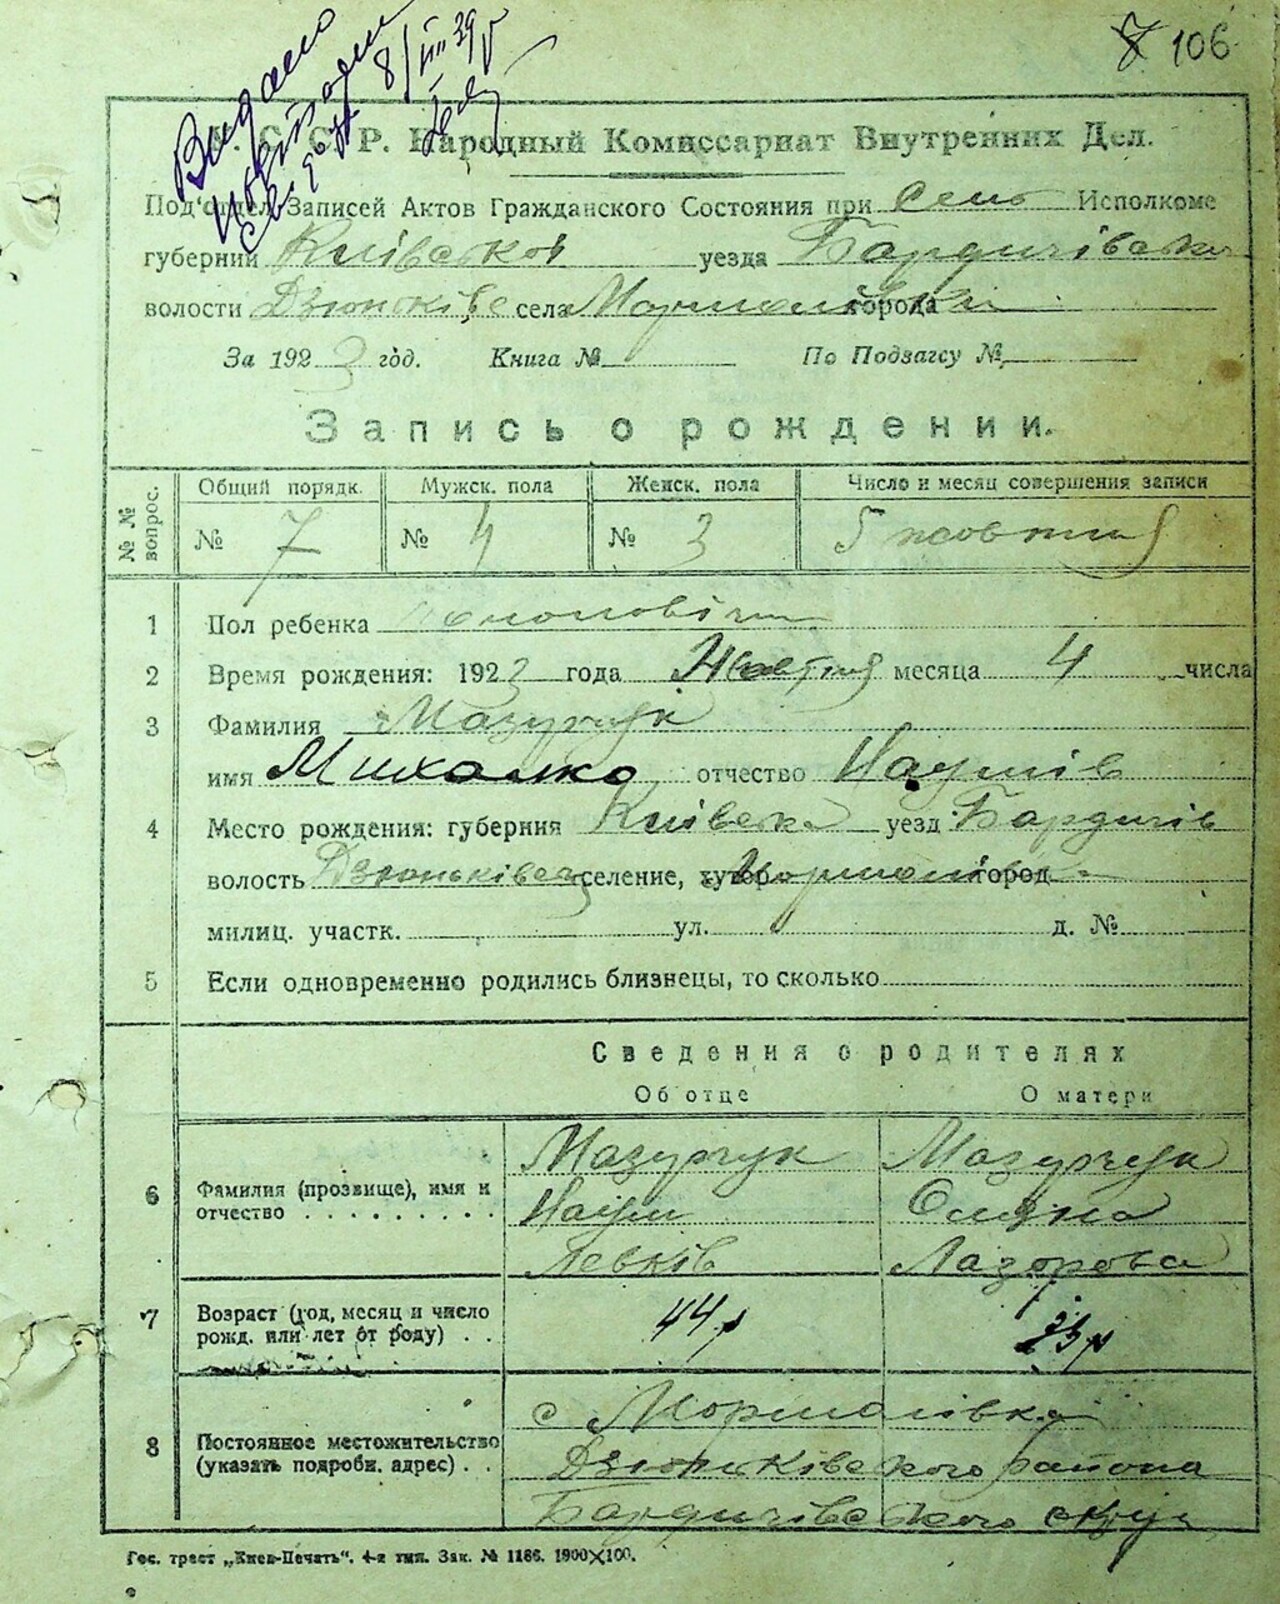 106
Видано
8/III 39 р
У. С. С. Р. Народный Комиссариат Внутренних Дел.
Под'отдел Записей Актов Гражданского Состояния при Сель Исполкоме
губернии Київської уезда Бардичівськ
волости Дзюньківс села города
За 1923 год. Книга № По Подзагсу №
Запись о рождении.
№ № вопрос. Общий порядк. Мужск. пола Женск. пола Число и месяц совершения записи
№ 7 № 4 № 3 5 жовтня
1 Пол ребенка
2 Время рождения: 1923 года Жовтня месяца 4 числа
3 Фамилия Мазурчук
имя Михалко отчество Наумів
4 Место рождения: губерния Київська уезд Бардичів
волость Дзюньківсц селение, хутор город
милиц. участк. ул. д. №
5 Если одновременно родились близнецы, то сколько
Сведения о родителях
Об отце О матери
6 Фамилия (прозвище), имя и отчество Мазурчук Наум Левків Мазурчук Оляна Лазорова
7 Возраст (год, месяц и число рожд. или лет от роду) 44 р
8 Постоянное местожительство (указать подробн. адрес)
с Мормолівка
Дзюньківського района
Бардичівського округ
Гос. трест „Киев-Печать“. 4-я тип. Зак. № 1186. 1900×100.